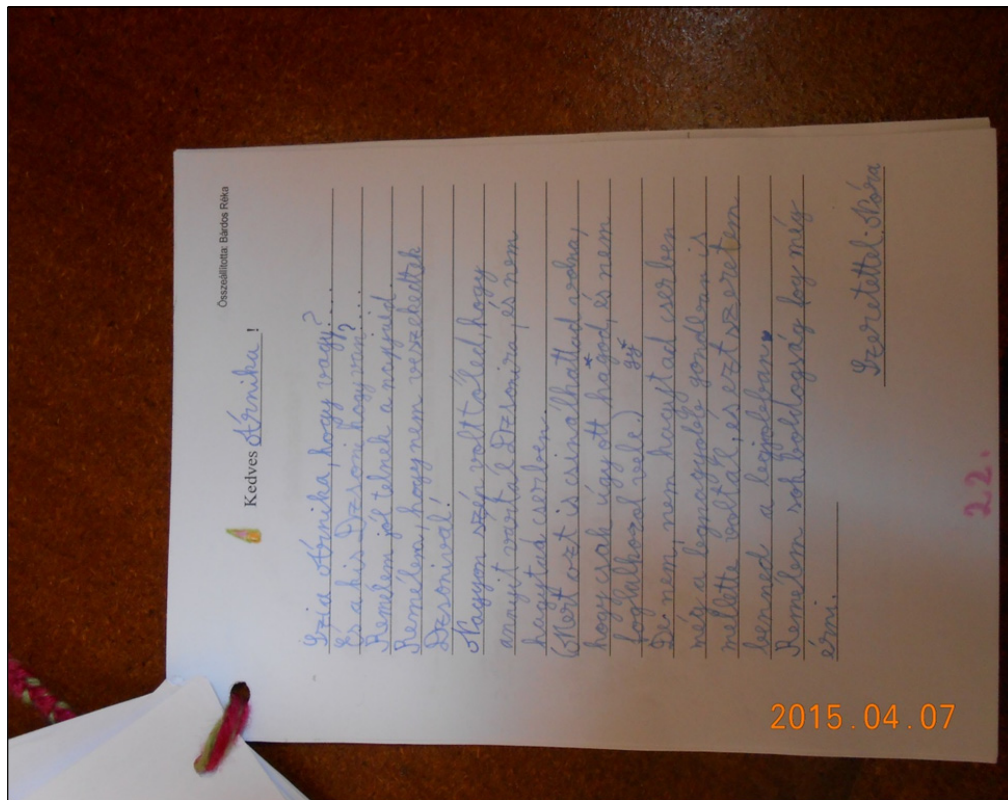 Összeállította: Bárdos Réka
Kedves Árnika!
Szia Árnika, hogy vagy?....
És a kis Dzsoni hogy van?.....
Remélem jól telnek a napjaid.
Remélem, hogy nem veszekedtek
Dzsonival!
Nagyon szép volt tőled, hogy
annyit vártál Dzsonira, és nem
hagytad cserben.
(Mert azt is csinálhattad volna,
hogy csak úgy ott hagod, és nem
gy*
foglalkozol vele.)
De nem, nem hagytad cserben
még a legnagyobb gondban is
mellette voltál, és ezt szeretem
benned a legjobban.
Remélem sok boldogság fog még
érni.
Szeretettel: Nóra
22.
2015.04.07